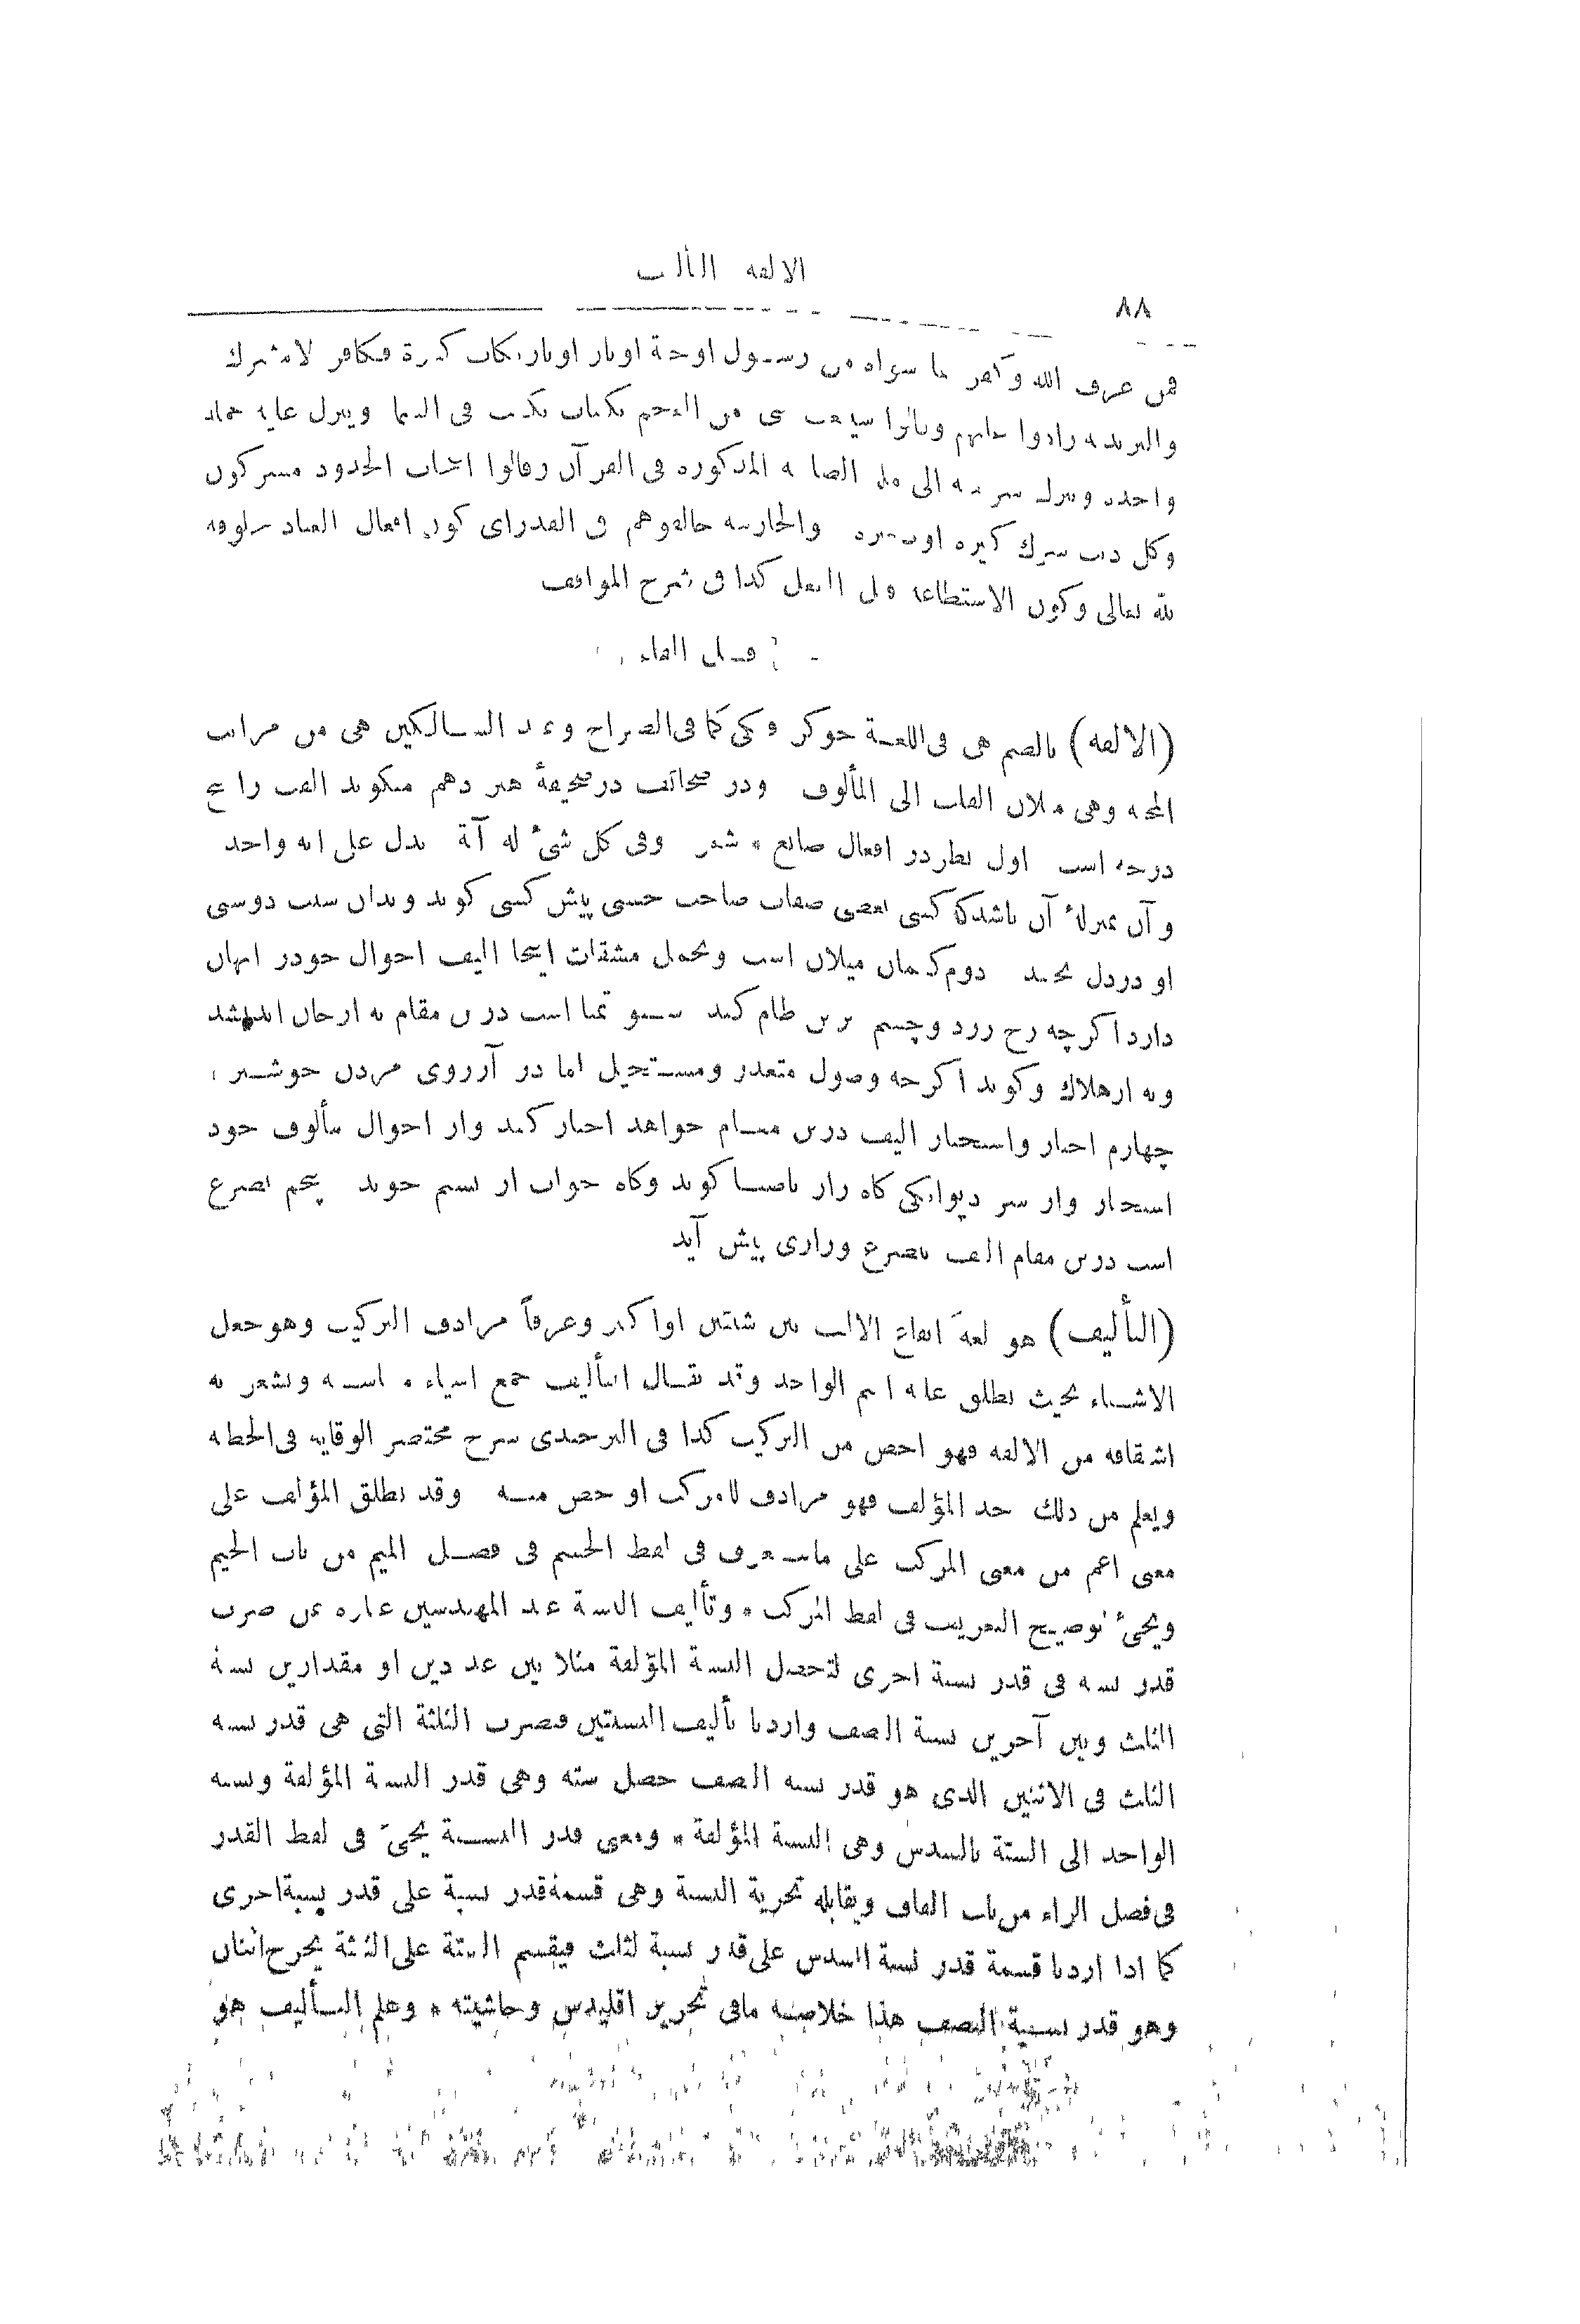 الالفة التأليف
٨٨
فمن عرف الله وكفر بما سواه من رسول او جنة او نار او بارتكاب كبيرة فكافر لا مشرك
واليزيدية زادوا عليهم وقالوا سيبعث نبي من العجم بكتاب يكتب فى السماء وينزل عليه جملة
واحدة ويترك شريعة الى ملة الصابئة المذكورة فى القرآن وقالوا اصحاب الحدود مشركون
وكل ذنب شرك كبيرة او صغيرة والحارثية خالفوهم فى القدر اى كون افعال العباد مخلوقة
لله تعالى وكون الاستطاعة قبل الفعل كذا فى شرح المواقف
فصل الفاء
(الالفة) بالضم هى فى اللغة خوكر فكى كما فى الصراح وعند السالكين هى من مراتب
المحبة وهى ميلان القلب الى المألوف ودر صحائف در صحيفۀ هژدهم ميكويد الفت را پنج
درجه است اول نظر در افعال صانع * شعر وفى كل شئ له آية تدل على انه واحد
وآن بمنزلۀ آن باشد كه كسى بعضى صفات صاحب حسنى پيش كسى كويد وبدان سبب دوستى
او در دل بجنبد دوم كتمان ميلان است وتحمل مشقات اينجا اليف احوال خود در انهان
دارد اكرچه رخ زرد وچشم تر بروى ظلم كند سيوم تمنا است درين مقام نه از جان انديشد
ونه از هلاك وكويد اكرچه وصول متعذر ومستحيل اما در آرزوى مردن خوشتر
چهارم اخبار واستخبار اليف درين مقام خواهد اخبار كند واز احوال مألوف خود
استخبار واز سر ديوانكى كاه راز باصبا كويد وكاه جواب از نسيم جويد پنجم تضرع
است درين مقام اليف بتضرع وزارى پيش آيد
(التأليف) هو لغة ايقاع الالف بين شيئين او اكثر وعرفاً مرادف التركيب وهو جعل
الاشياء بحيث يطلق عليه اسم الواحد وقد يقال التأليف جمع اشياء متناسبة ويشعر به
اشتقاقه من الالفة فهو اخص من التركيب كذا فى البرجندى شرح مختصر الوقاية فى الخطبة
ويعلم من ذلك حد المؤلف فهو مرادف للمركب او اخص منه وقد يطلق المؤلف على
معنى اعم من معنى المركب على ما ستعرف فى لفظ الجسم فى فصل الميم من باب الجيم
ويجئ توضيح التعريف فى لفظ المركب * وتأليف النسبة عند المهندسين عبارة عن ضرب
قدر نسبة فى قدر نسبة اخرى لتحصل النسبة المؤلفة مثلا بين عددين او مقدارين نسبة
الثلث وبين آخرين نسبة النصف واردنا تأليف النسبتين فضرب الثلثة التى هى قدر نسبة
الثلث فى الاثنين الذى هو قدر نسبة النصف حصل ستة وهى قدر النسبة المؤلفة ونسبة
الواحد الى الستة بالسدس وهى النسبة المؤلفة * ومعنى قدر النسبة يجئ فى لفظ القدر
فى فصل الراء من باب القاف ويقابله تجزية النسبة وهى قسمة قدر نسبة على قدر نسبة اخرى
كما اذا اردنا قسمة قدر نسبة السدس على قدر نسبة الثلث فيقسم الستة على الثلثة يخرج اثنان
وهو قدر نسبة النصف هذا خلاصة ما فى تحرير اقليدس وحاشيته * وعلم التأليف هو